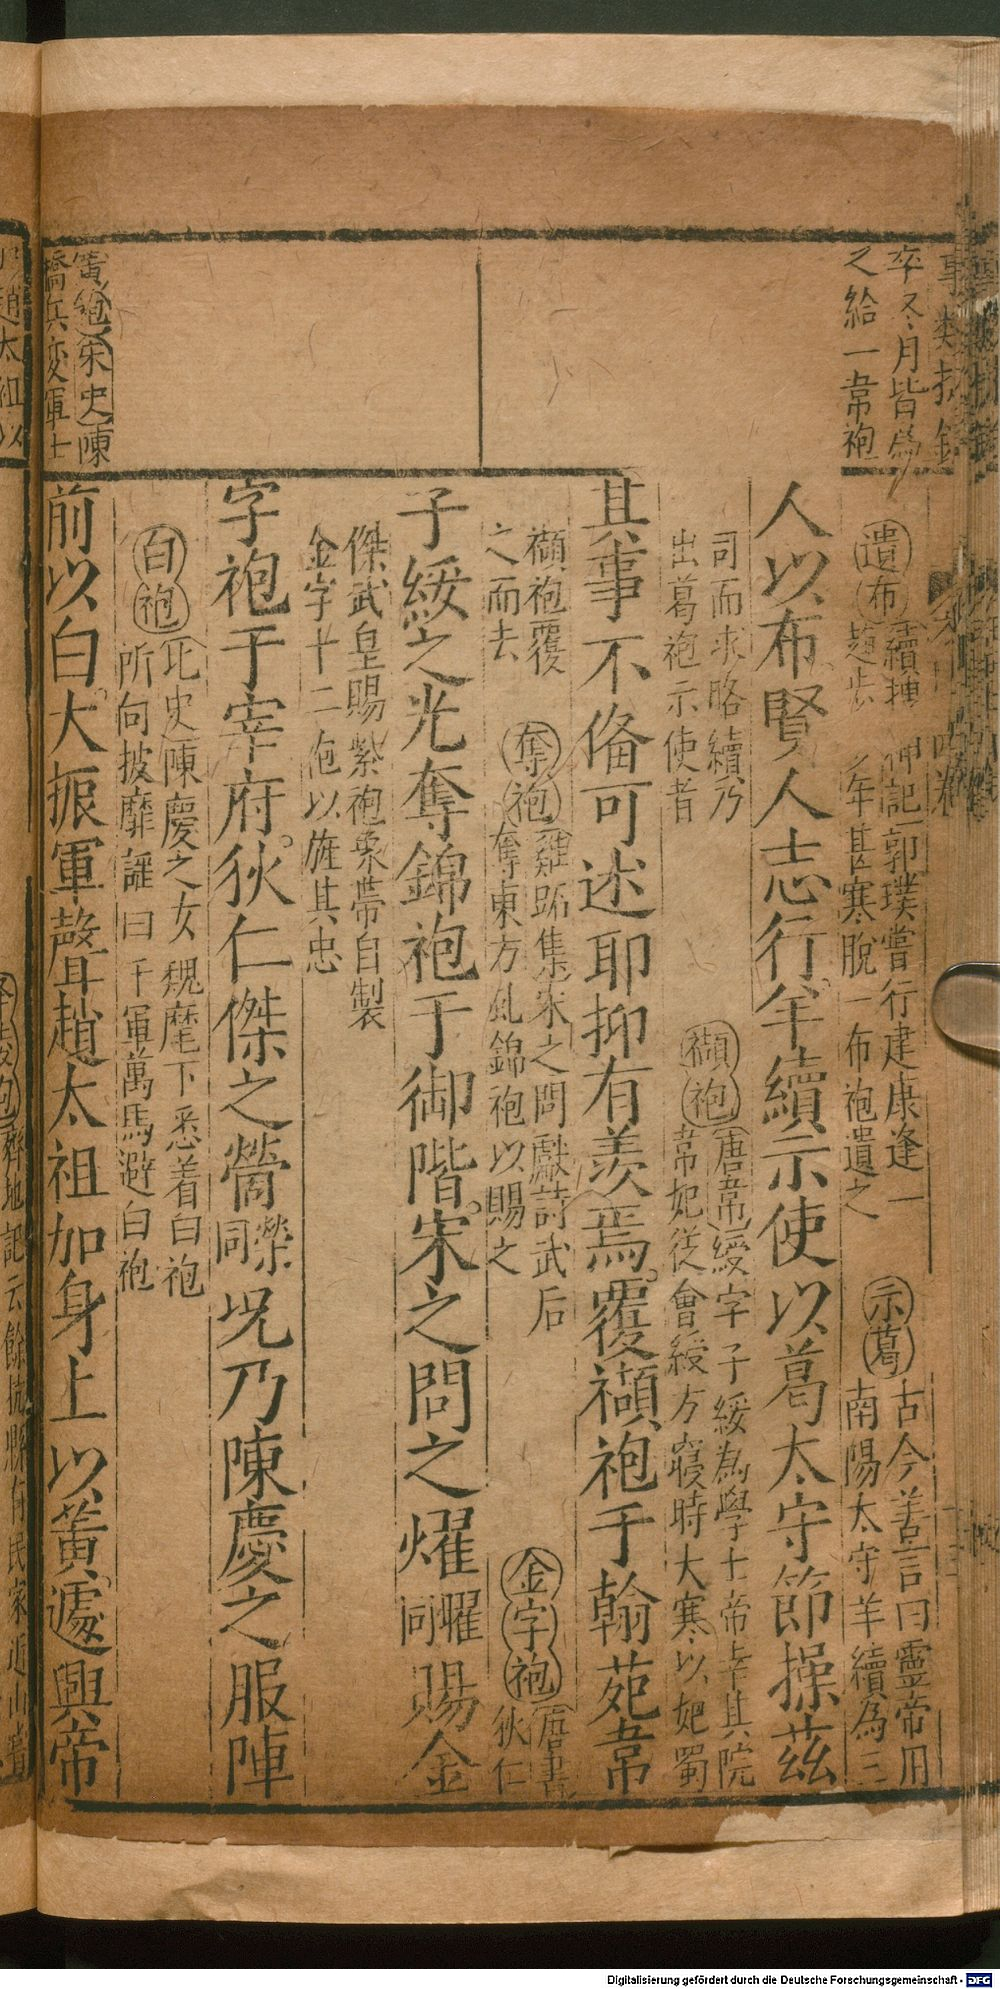 卒冬月皆為
之給一韋袍
遺布 續搜 神記郭璞嘗行建康逢一
趙 少年甚寒脫一布袍遺之
示葛 古今善言曰靈帝用
南陽太守羊續為三
人以布賢人志行羊續示使以葛太守節操茲
司而求賂續乃
出葛袍示使者
襭袍 唐韋綬字子綬為學士帝幸其院
韋妃從會綬方寢時大寒以妃蜀
其事不俻可述耶抑有羨焉覆襭袍于翰苑韋
襭袍覆
之而去
奪袍 雞跖集宋之問獻詩武后
奪東方虬錦袍以賜之
金字袍 唐書
狄仁
子綬之光奪錦袍于御階宋之問之燿曜同賜金
傑武皇賜紫袍龜帶自製
金字十二袍以旌其忠
字袍于宰府狄仁傑之㷀榮同况乃陳慶之服陣
白袍 北史陳慶之女魏麾下悉着白袍
所向披靡謹曰千軍萬馬避白袍
前以白大振軍聲趙太祖加身上以黃遽興帝
黃袍 宋史陳
橋兵變軍士
趙太祖以
地記云餘抗縣有民家近山
Digitalisierung gefördert durch die Deutsche Forschungsgemeinschaft - DFG